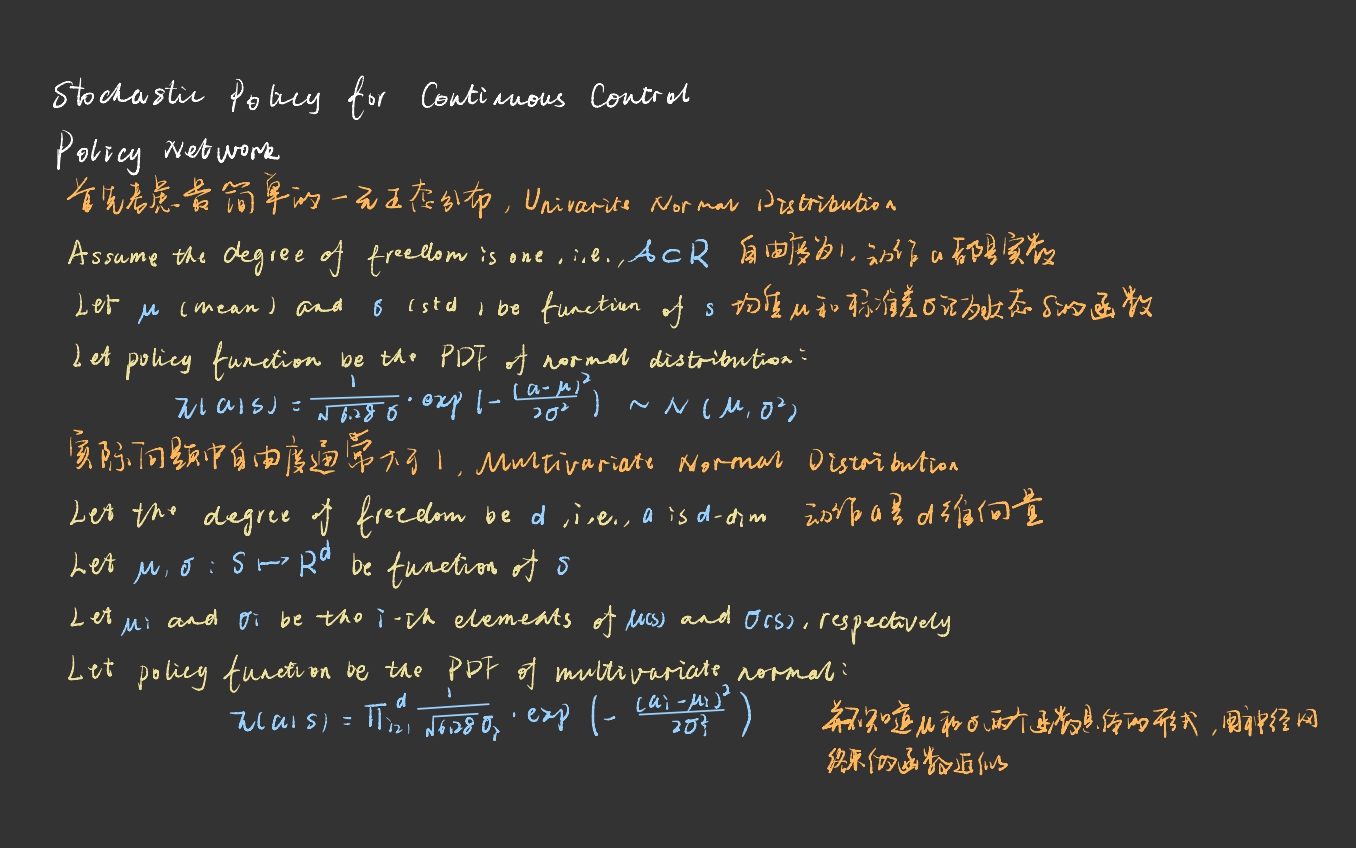 Stochastic Policy for Continuous Control
Policy Network
首先考虑最简单的一元正态分布, Univarite Normal Distribution
Assume the degree of freedom is one, i.e., A⊂R 自由度为1, 动作a都是实数
Let μ (mean) and σ (std) be function of s 均值μ和标准差σ记为状态s的函数
Let policy function be the PDF of normal distribution:
π(a|s) = 1/(√6.28 σ) · exp(-(a-μ)²/2σ²) ~ N(μ, σ²)
实际问题中自由度通常大于1, Multivariate Normal Distribution
Let the degree of freedom be d, i.e., a is d-dim 动作a是d维向量
Let μ, σ : S ↦ R^d be function of s
Let μi and σi be the i-th elements of μ(s) and σ(s), respectively
Let policy function be the PDF of multivariate normal:
π(a|s) = ∏_{i=1}^d 1/(√6.28 σi) · exp(-(ai-μi)²/2σi²)
并不知道μ和σ两个函数具体的形式, 用神经网
络来做函数近似